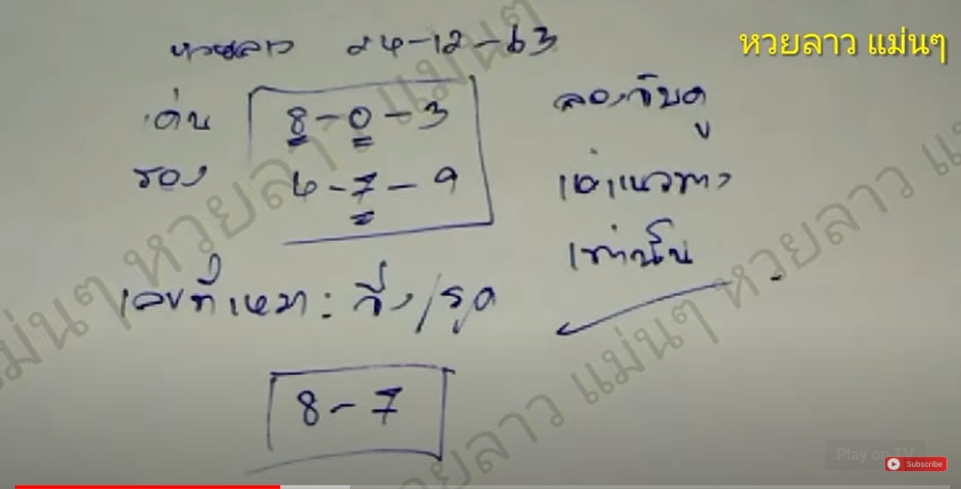 หวยลาว แม่นๆ
หวยลาว 24-12-63
เด่น 8-0-3
รอง 6-7-9
ลองจับดู
เอาแนวทาง
เท่านั้น
เลขที่เหมา: วิ่ง/รูด
8-7
หวยลาว แม่นๆ หวยลาว แม่นๆ
Play on TV
Subscribe